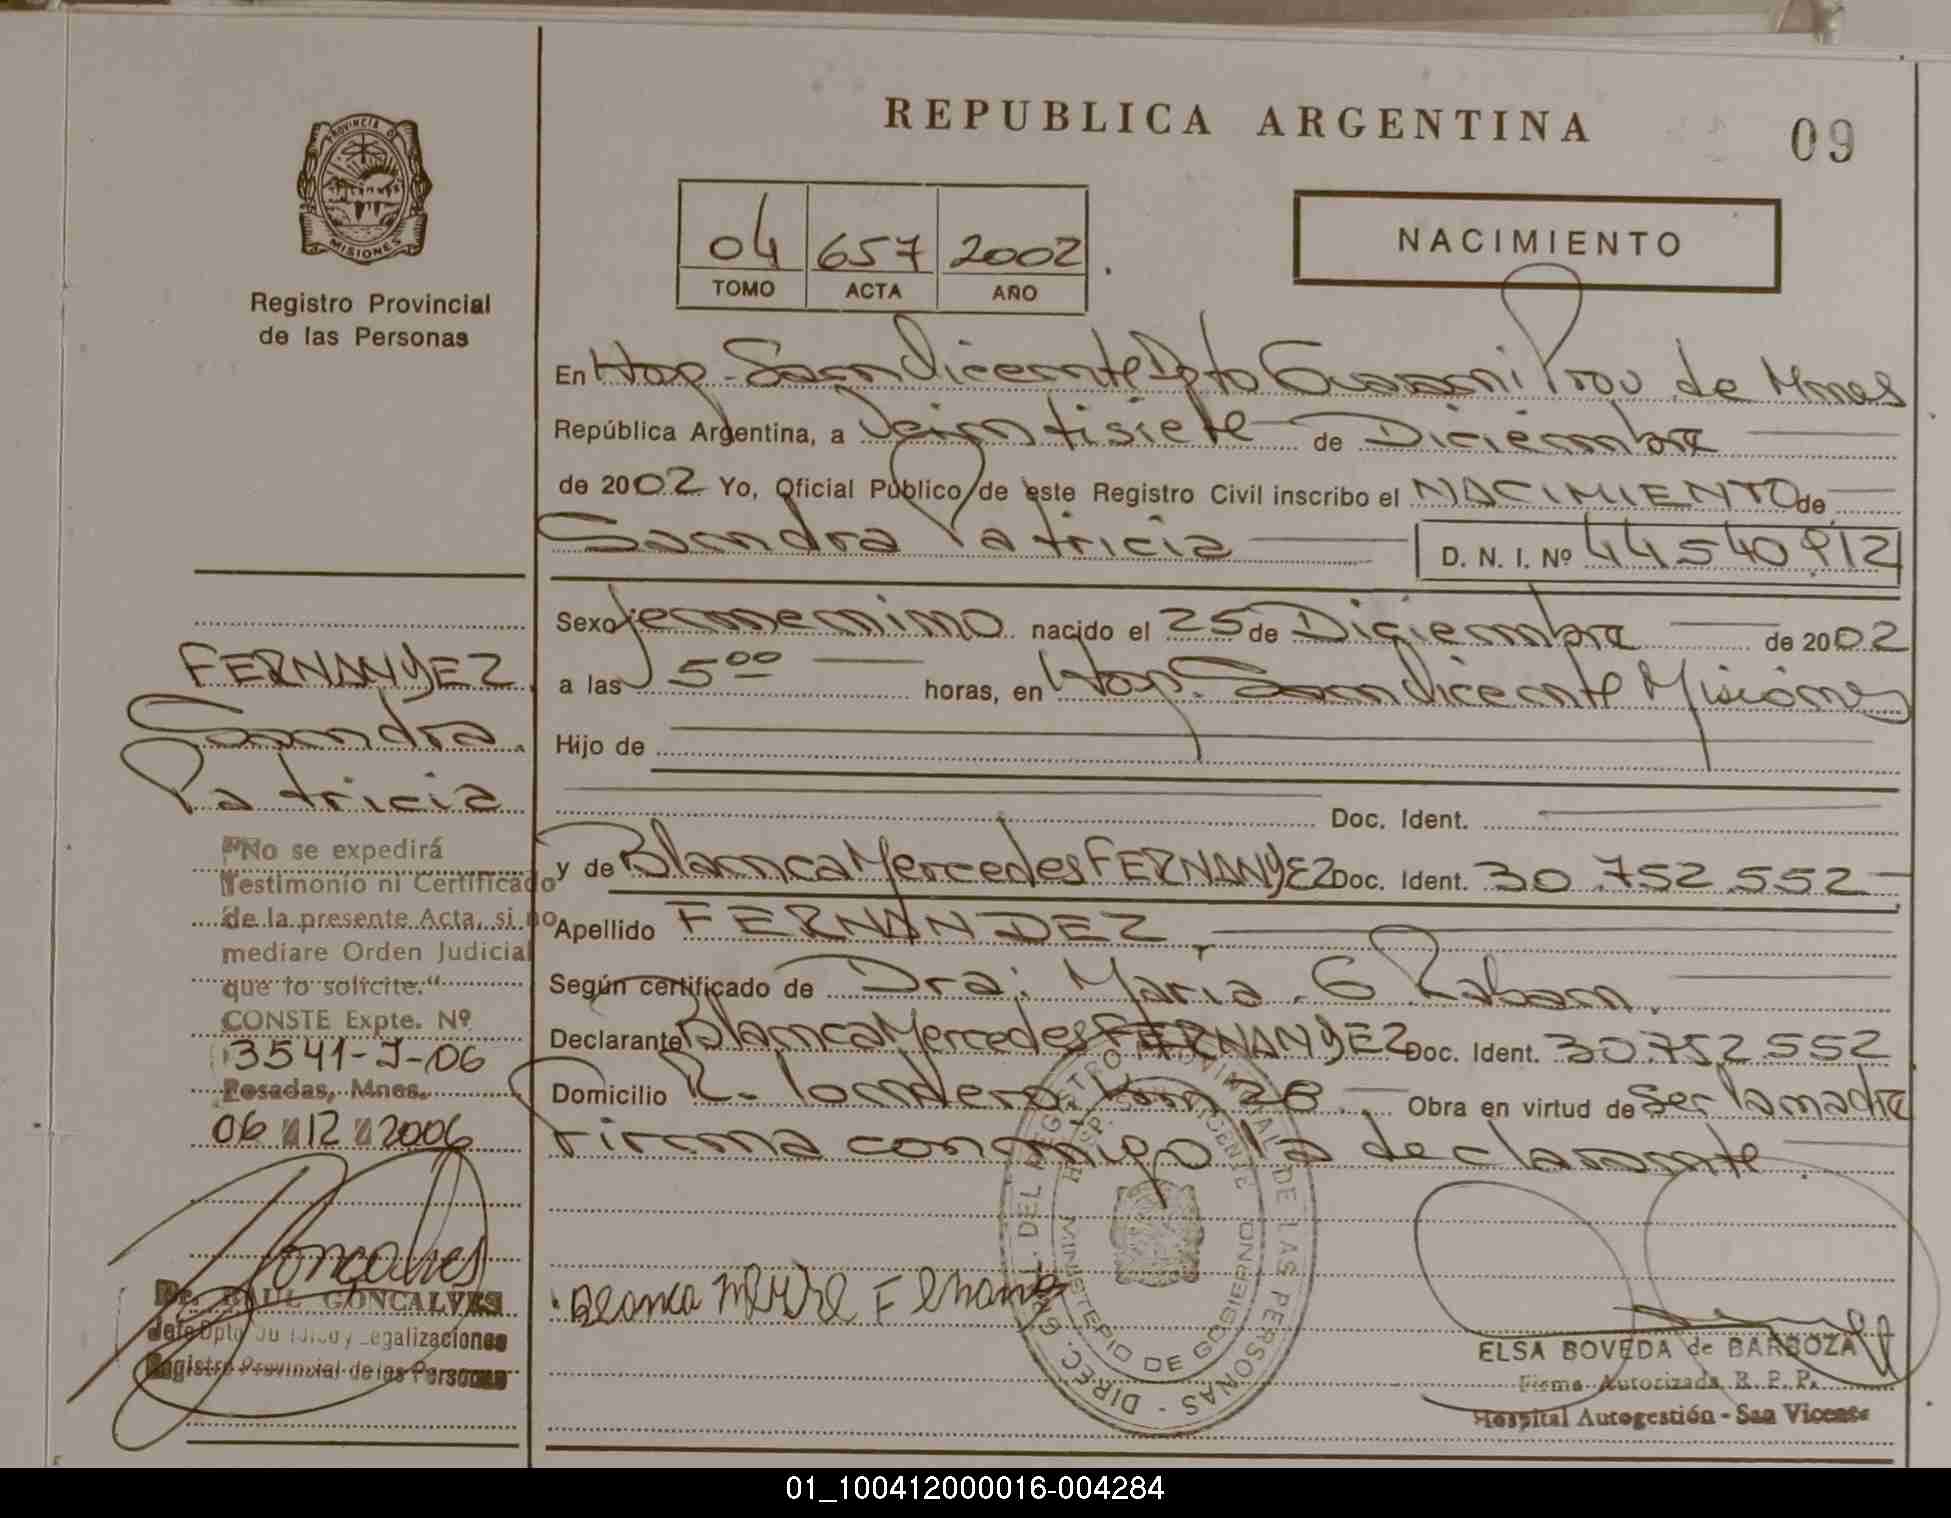 REPUBLICA ARGENTINA
09
PROVINCIA DE
MISIONES
Registro Provincial
de las Personas
04 657 2002
TOMO ACTA AÑO
NACIMIENTO
En Hosp. San Vicente Dpto Guarani Prov de Mnes
República Argentina, a Veintisiete de Diciembre
de 2002 Yo, Oficial Público de este Registro Civil inscribo el NACIMIENTO de
Sandra Patricia D. N. I. Nº 44540912
Sexo femenino nacido el 25 de Diciembre de 2002
a las 5 00 horas, en Hosp. San Vicente Misiones
Hijo de
Doc. Ident.
y de Blanca Mercedes FERNANDEZ Doc. Ident. 30.752.552
Apellido FERNANDEZ
Según certificado de Dra. Maria. G Raban.
Declarante Blanca Mercedes FERNANDEZ Doc. Ident. 30.752552
Domicilio R. londero km 28 Obra en virtud de Ser la madre
Firma conmigo la declarante
FERNANDEZ
Sandra
Patricia
"No se expedirá
Testimonio ni Certificado
de la presente Acta, si no
mediare Orden Judicial
que lo solicite."
CONSTE Expte. Nº
3541-J-06
Posadas, Mnes.
06 12 2006
Goncalves
Dr. RAUL GONCALVES
Jefe Dpto Jurídico y Legalizaciones
Registro Provincial de las Personas
Blanca
DIREC. GRAL. DEL REGISTRO PROVINCIAL DE LAS PERSONAS - MINISTERIO DE GOBIERNO
HOSP. SAN VICENTE
ELSA BOVEDA de BARBOZA
Firma Autorizada R. P. P.
Hospital Autogestión - San Vicente
01_100412000016-004284